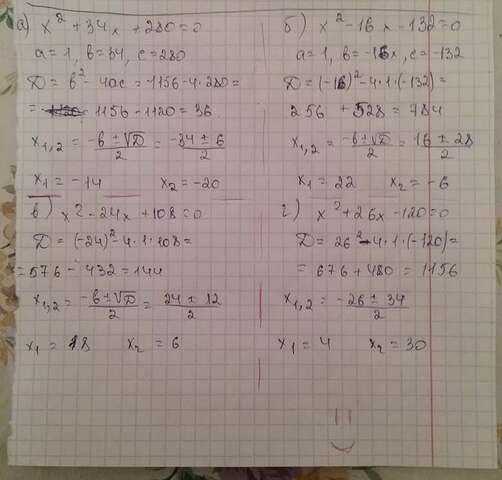 а) x² + 34x + 280 = 0
a = 1, b = 34, c = 280
D = b² - 4ac = 1156 - 4·280 =
= 1156 - 1120 = 36
x₁,₂ = (-b ± √D)/2 = (-34 ± 6)/2
x₁ = -14 x₂ = -20
б) x² - 16x - 132 = 0
a = 1, b = -16x, c = -132
D = (-16)² - 4·1·(-132) =
256 + 528 = 784
x₁,₂ = (-b ± √D)/2 = (16 ± 28)/2
x₁ = 22 x₂ = -6
в) x² - 24x + 108 = 0
D = (-24)² - 4·1·108 =
= 576 - 432 = 144
x₁,₂ = (-b ± √D)/2 = (24 ± 12)/2
x₁ = 18 x₂ = 6
г) x² + 26x - 120 = 0
D = 26² - 4·1·(-120) =
= 676 + 480 = 1156
x₁,₂ = (-26 ± 34)/2
x₁ = 4 x₂ = 30